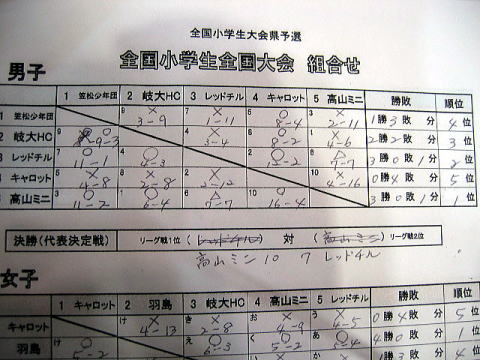 全国小学生大会県予選
全国小学生全国大会 組合せ
男子
1 笠松少年団 2 岐大HC 3 レッドチル 4 キャロット 5 高山ミニ 勝敗 順位
1 笠松少年団 × 3-9 × 1-11 ○ 8-4 × 2-11 1勝3敗 分 4位
2 岐大HC 9-3 × 3-4 ○ 8-2 × 4-6 2勝2敗 分 3位
3 レッドチル ○ 11-1 ○ 4-3 ○ 12-2 △ 7-7 3勝0敗1分 2位
4 キャロット × 4-8 × 2-8 × 2-12 × 4-16 0勝4敗 分 5位
5 高山ミニ ○ 11-2 ○ 6-4 △ 7-7 ○ 16-4 3勝0敗1分 1位
決勝(代表決定戦) リーグ戦1位 (レッドチル) 対 (高山ミニ) リーグ戦2位
高山ミニ 10 7 レッドチル
女子
1 キャロット 2 羽島 3 岐大HC 4 高山ミニ 5 レッドチル 勝敗 順位
キャロット け × 4-13 き × 2-8 お × 4-9 う × 4-5 0勝4敗 分 5位
羽島 ○ え ○ 6-3 ○ 5-2 ○ 4勝0敗 分 1位